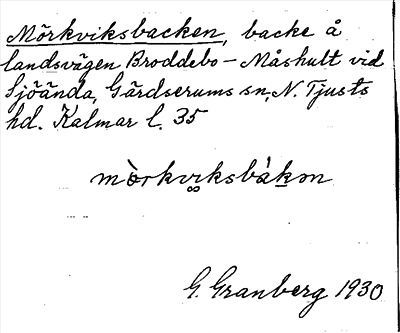 Mörkviksbacken, backe å
landsvägen Broddebo – Måshult vid
Sjöända, Gärdserums sn, N. Tjusts
hd. Kalmar l. 35
G. Granberg 1930